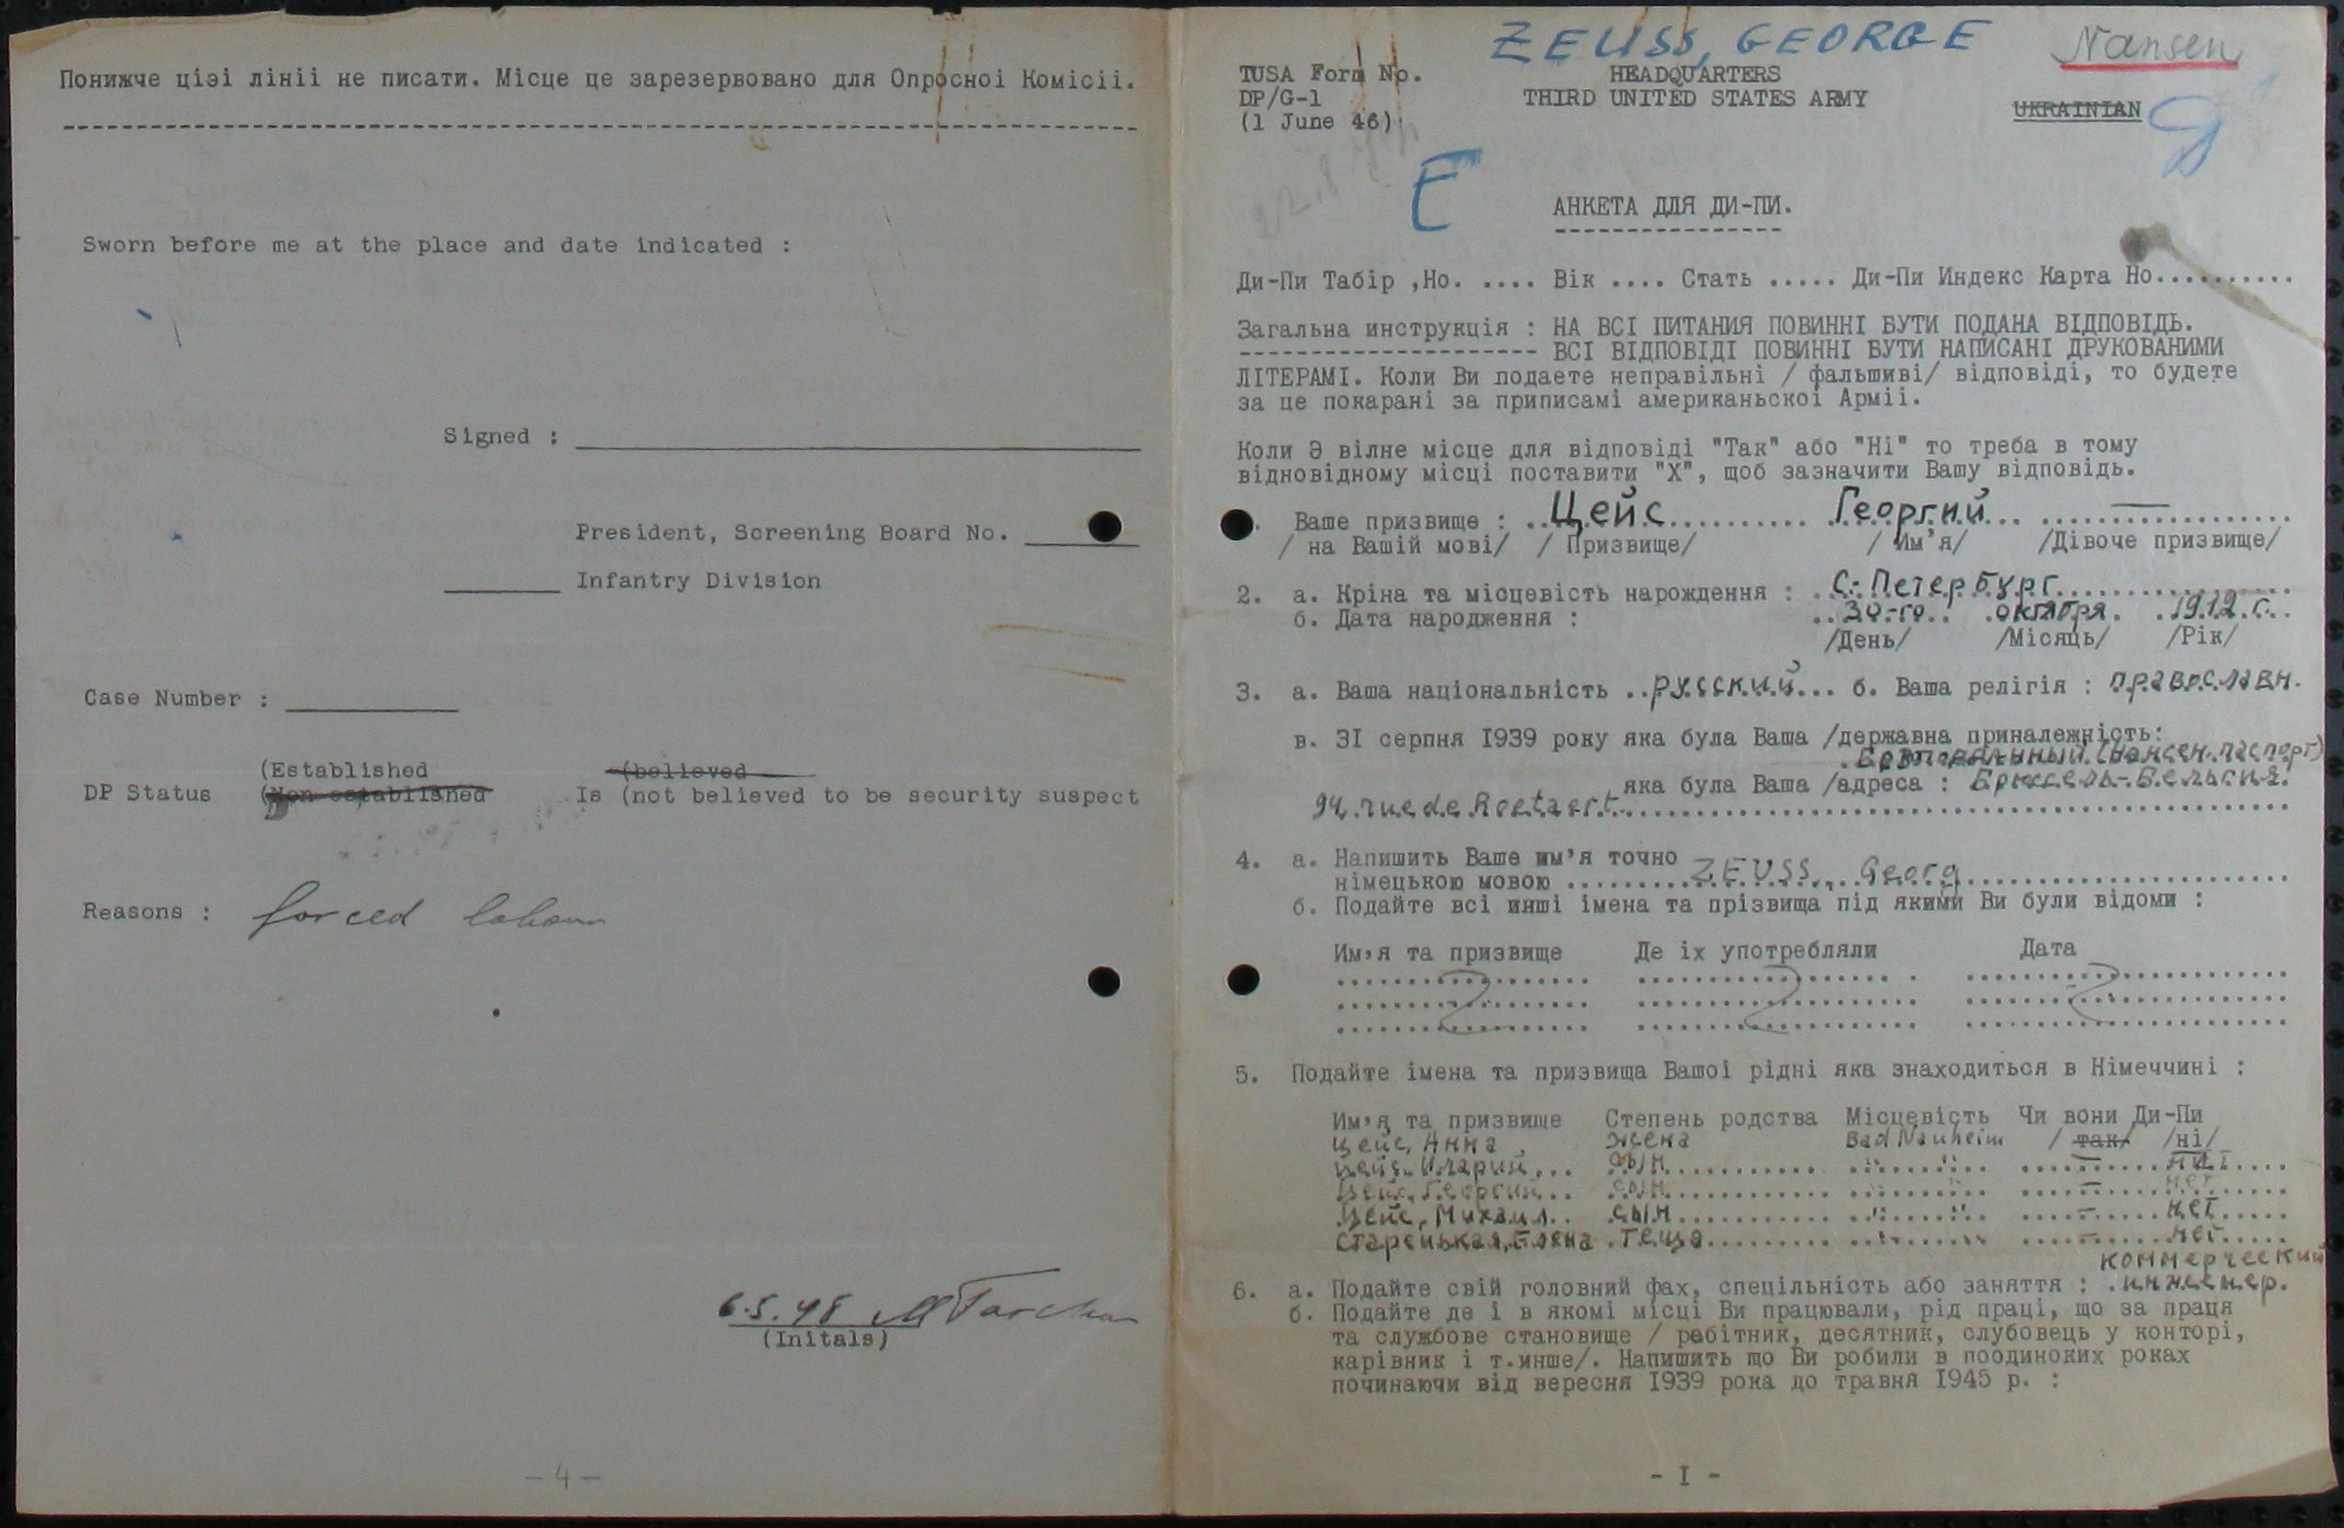 Понижче цієі лініі не писати. Місце це зарезервовано для Опросноі Комісіі.
Sworn before me at the place and date indicated :
Signed :
President, Screening Board No.
Infantry Division
Case Number :
(Established
(believed
DP Status (Non established Is (not believed to be security suspect
Reasons : forced labour
6.5.48
(Initals)
- 4 -
ZEUSS, GEORGE
Nansen
TUSA Form No.
DP/G-1
(1 June 46)
HEADQUARTERS
THIRD UNITED STATES ARMY
UKRAINIAN
E
АНКЕТА ДЛЯ ДИ-ПИ.
Ди-Пи Табір ,Но. .... Вік .... Стать ..... Ди-Пи Индекс Карта Но..........
Загальна инструкція : НА ВСІ ПИТАНИЯ ПОВИННІ БУТИ ПОДАНА ВІДПОВІДЬ.
--------------------- ВСІ ВІДПОВІДІ ПОВИННІ БУТИ НАПИСАНІ ДРУКОВАНИМИ
ЛІТЕРАМІ. Коли Ви подаете неправільні / фальшиві/ відповіді, то будете
за це покарані за приписамі американьскоі Арміі.
Коли Э вілне місце для відповіді "Так" або "Ні" то треба в тому
відновідному місці поставити "Х", щоб зазначити Вашу відповідь.
. Ваше призвище : ..Цейс.......... .Георгий... —
/ на Вашій мові/ / Призвище/ / Им'я/ /Дівоче призвище/
2. а. Кріна та місцевість нарождення : С.-Петербург
б. Дата народження : ..30-го.. .октября. .1912 г..
/День/ /Місяць/ /Рік/
3. а. Ваша національність ..русский... б. Ваша релігія : православн.
в. 3І серпня І939 року яка була Ваша /державна приналежність:
(Нансен.паспорт)
яка була Ваша /адреса : Брюссель-Бельгия.
94. rue de Roetaert
4. а. Напишить Ваше им'я точно
німецькою мовою ZEUSS, Georg
б. Подайте всі инші імена та прізвища під якими Ви були відоми :
Им'я та призвище Де іх употребляли Дата
5. Подайте імена та призвища Вашоі рідні яка знаходиться в Німеччині :
Им'я та призвище Степень родства Місцевість Чи вони Ди-Пи
Цейс, Анна жена Bad Nauheim / так/ /ні/
Цейс, Иларий... сын " " — нет
Цейс, Георгий.. сын " " — нет
Цейс, Михаил.. сын " " — нет
Старенькая, Елена теща " " — нет
коммерческий
6. а. Подайте свій головний фах, спецільність або заняття : .инженер.
б. Подайте де і в якомі місці Ви працювали, рід праці, що за праця
та службове становище / рабітник, десятник, слубовець у конторі,
карівник і т.инше/. Напишить що Ви робили в поодиноких роках
починаючи від вересня І939 рока до травня І945 р. :
- І -